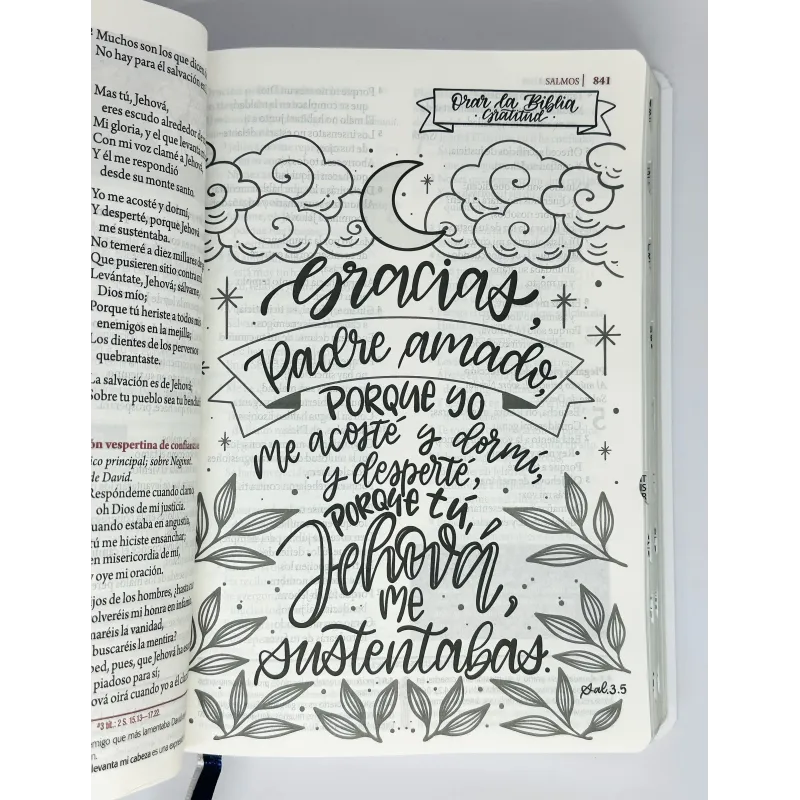 Muchos son los que dicen
No hay para él salvación
Mas tú, Jehová,
eres escudo alrededor
Mi gloria, y el que levanta
Con mi voz clamé a Jehová,
Y él me respondió
desde su monte santo.
Yo me acosté y dormí,
Y desperté, porque Jehová
me sustentaba.
No temeré a diez millares
Que pusieren sitio contra
Levántate, Jehová; sálvame,
Dios mío;
Porque tú heriste a todos
enemigos en la mejilla;
Los dientes de los perversos
quebrantaste.
La salvación es de Jehová;
Sobre tu pueblo sea tu
vespertina de
principal; sobre Neginot.
de David.
Respóndeme cuando clamo
oh Dios de mi justicia.
Cuando estaba en angustia,
tú me hiciste ensanchar;
en misericordia de mí,
y oye mi oración.
de los hombres,
volveréis mi honra en
la vanidad,
buscaréis la mentira?
pues, que Jehová
piadoso para sí;
oirá cuando yo a él
2 S. 15.13—17.22.
que más lamentaba
levanta mi cabeza es una
SALMOS | 841
Orar la Biblia
· Gratitud ·
Gracias,
Padre amado,
PORQUE YO
me acosté y dormí,
y desperté,
PORQUE tú,
Jehová,
ME
sustentabas.
Sal.3.5